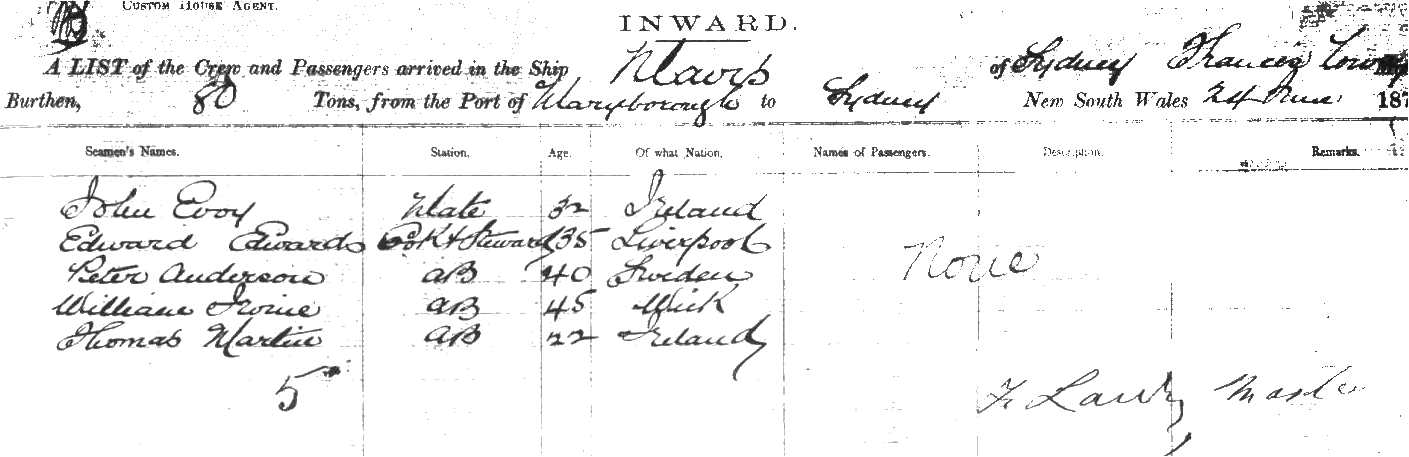 CUSTOM HOUSE AGENT.
INWARD.
A LIST of the Crew and Passengers arrived in the Ship Mavis of Sydney Francis
Burthen, 80 Tons, from the Port of Maryborough to Sydney New South Wales 24 June 187
Seamen's Names. Station. Age. Of what Nation. Names of Passengers. Description. Remarks.
John Evoy Mate 32 Ireland
Edward Edwards Cook & Steward 35 Liverpool
None
Peter Anderson AB 40 Sweden
William Irvine AB 45 Wick
Thomas Martin AB 22 Ireland
5
Master